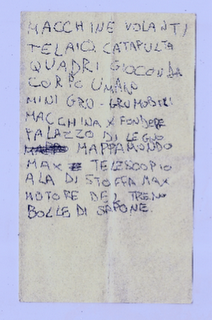 MACCHINE VOLANTI
TELAIO CATAPULTA
QUADRI GIOCONDA
CORPO UMANO
MINI GRU - GRU MOBILI
MACCHINA X FONDERE
PALAZZO DI LEGNO
MAPPAMONDO
MAX TELESCOPIO
ALA DI STOFFA MAX
MOTORE DEL TRENO
BOLLE DI SAPONE